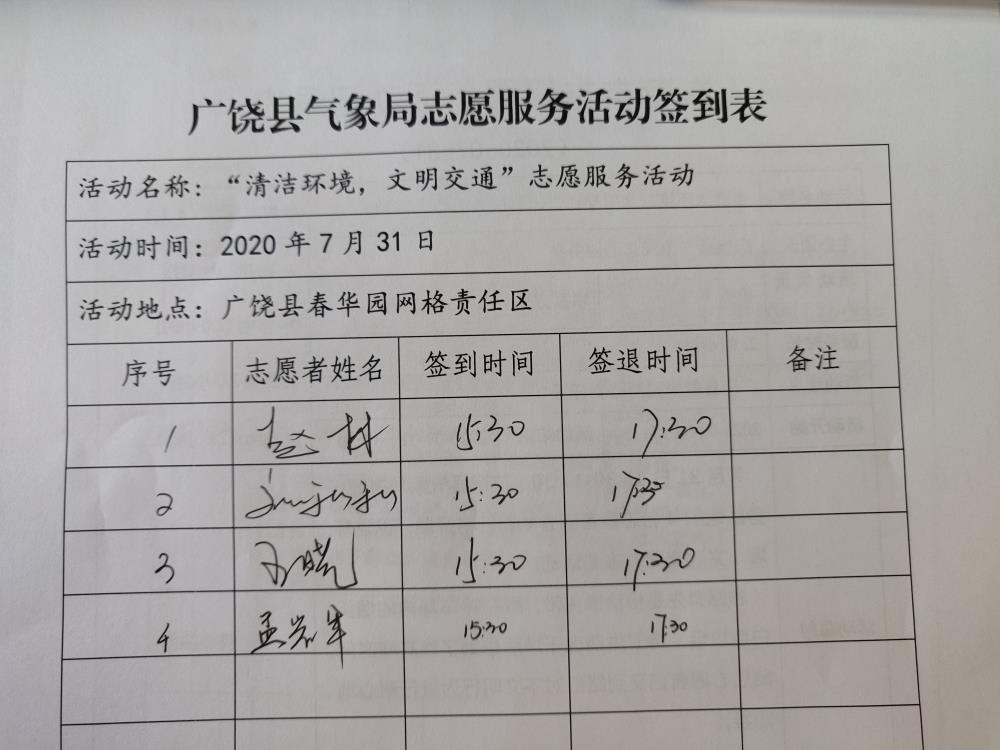 广饶县气象局志愿服务活动签到表
活动名称：“清洁环境，文明交通”志愿服务活动
活动时间：2020 年 7 月 31 日
活动地点：广饶县春华园网格责任区
序号 志愿者姓名 签到时间 签退时间 备注
1 赵林 15:30 17:30
2 15:30 17:30
3 晓 15:30 17:30
4 孟岩军 15:30 17:30